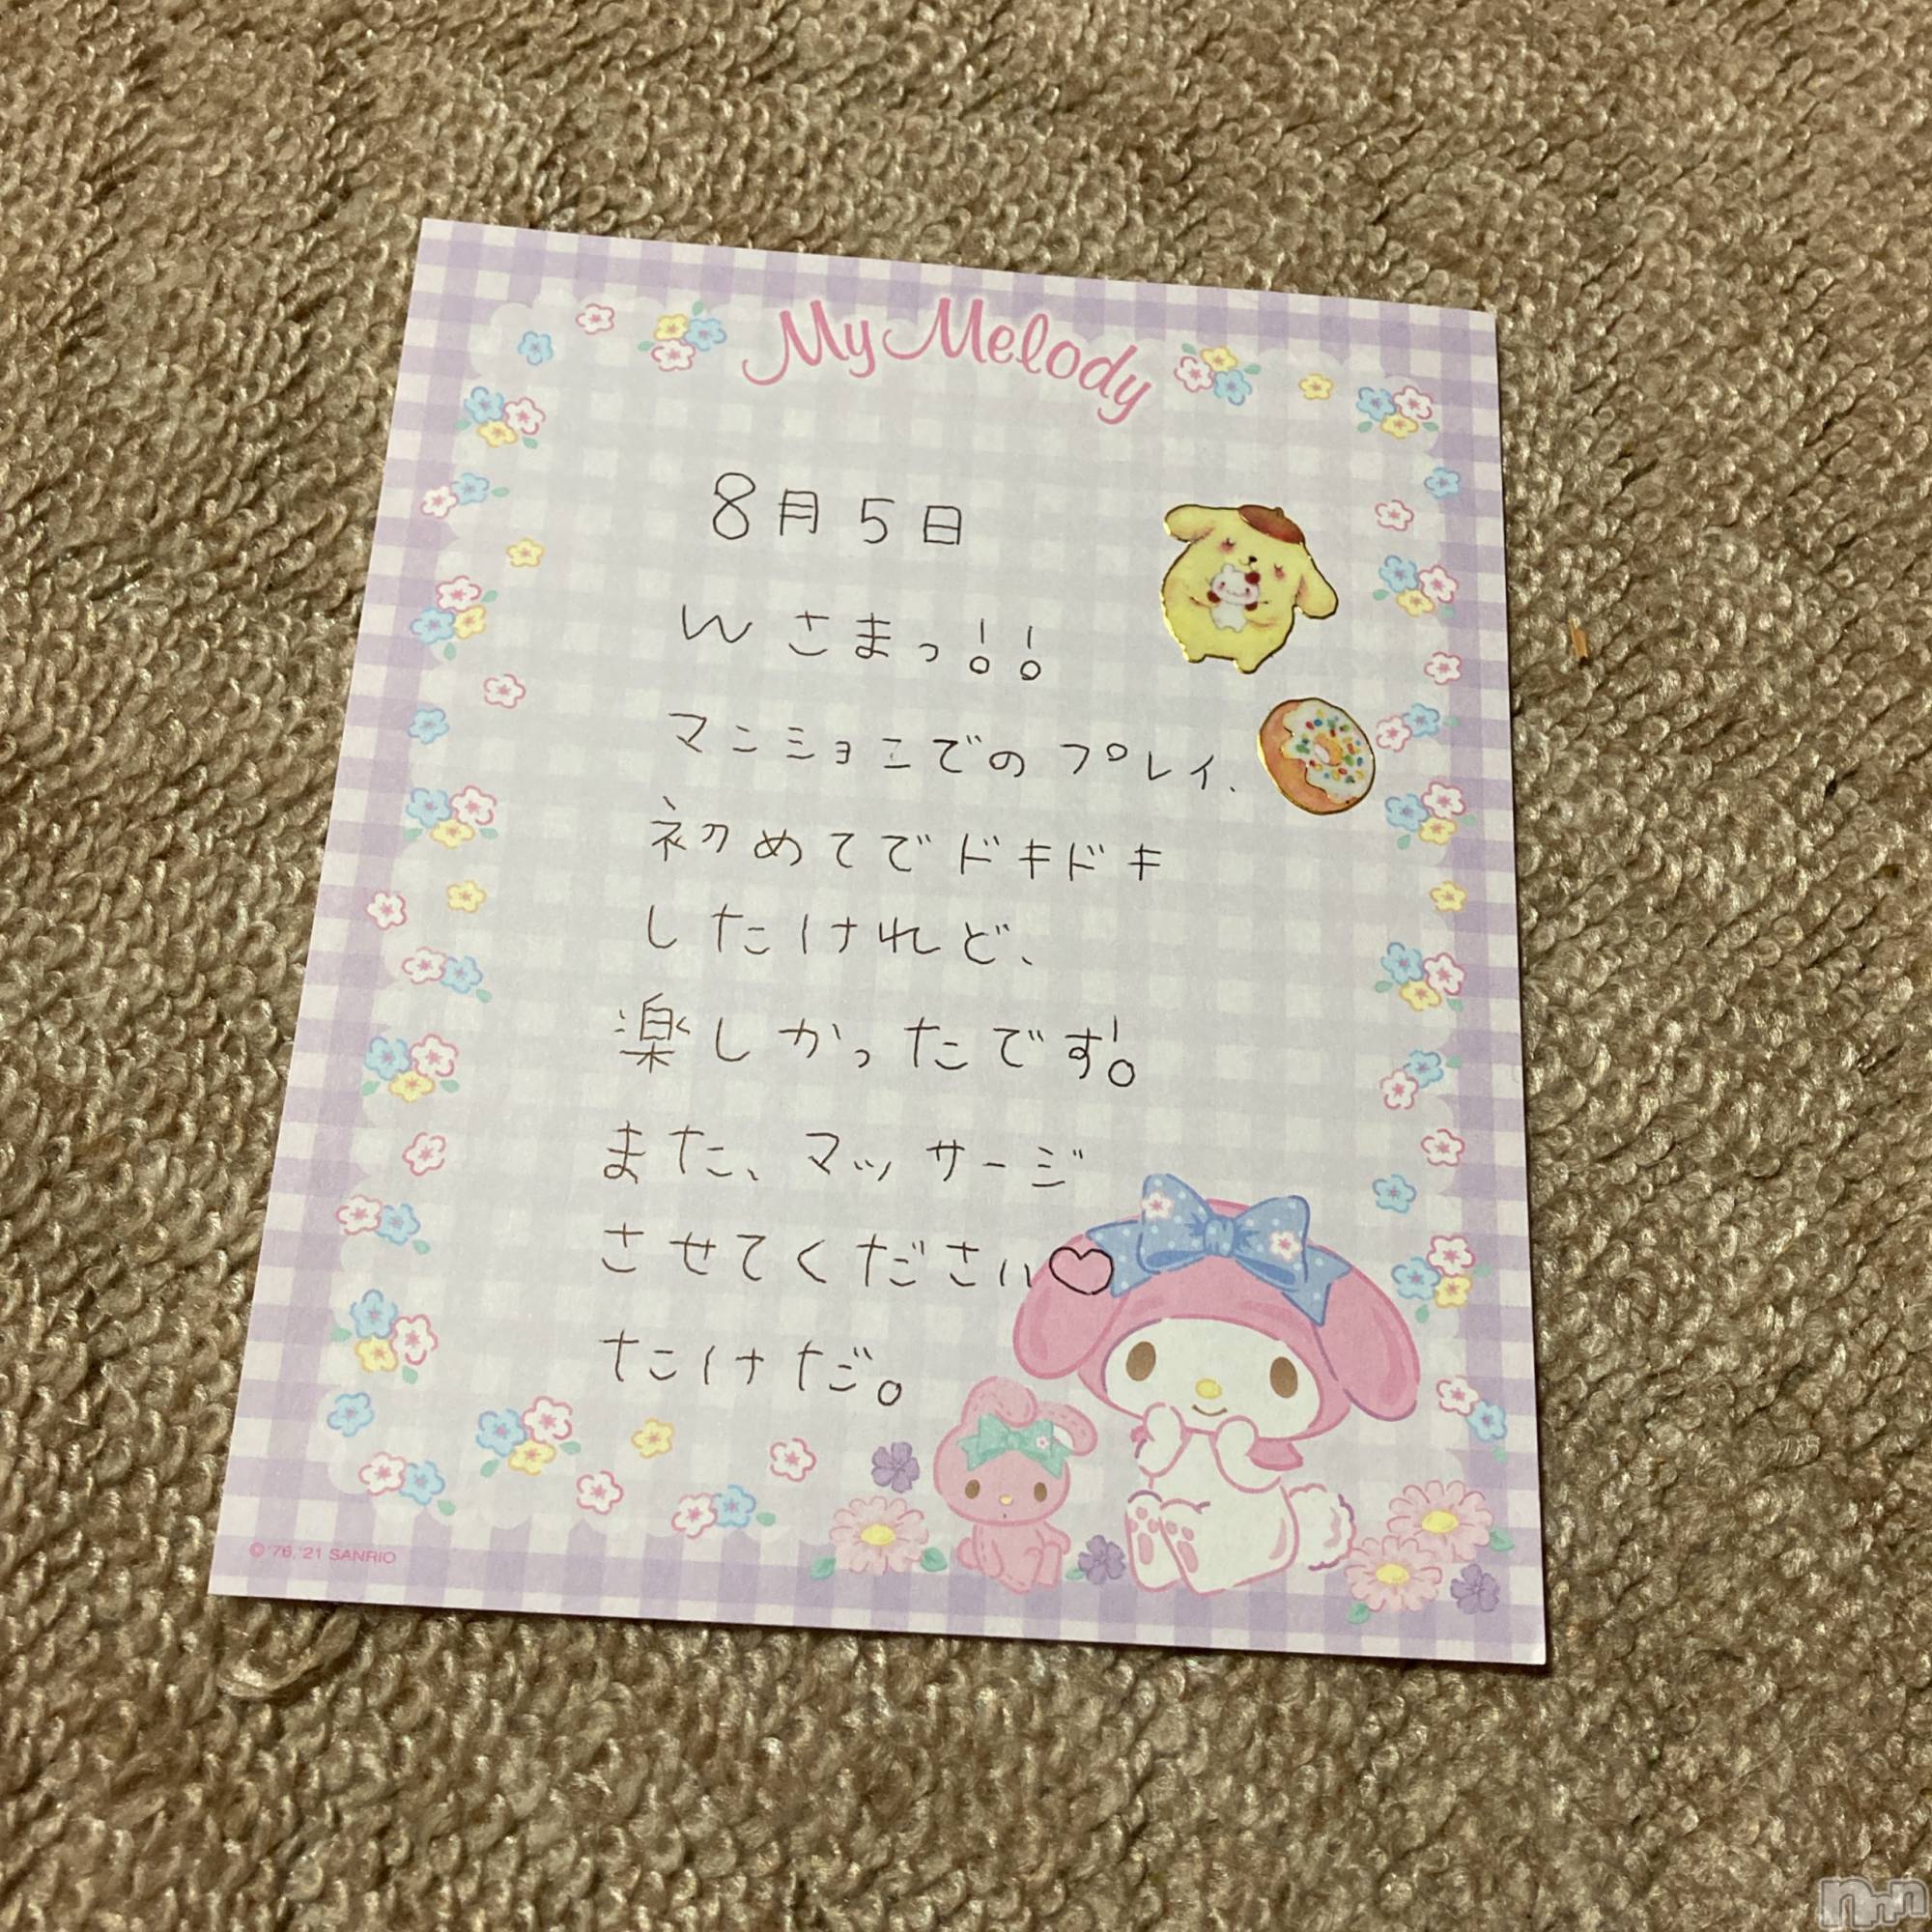 My Melody
8月5日
Wさまっ!!
マンションでのプレイ、
初めてでドキドキ
したけれど、
楽しかったです!
また、マッサージ
させてください♡
たけだ。
© '76, '21 SANRIO